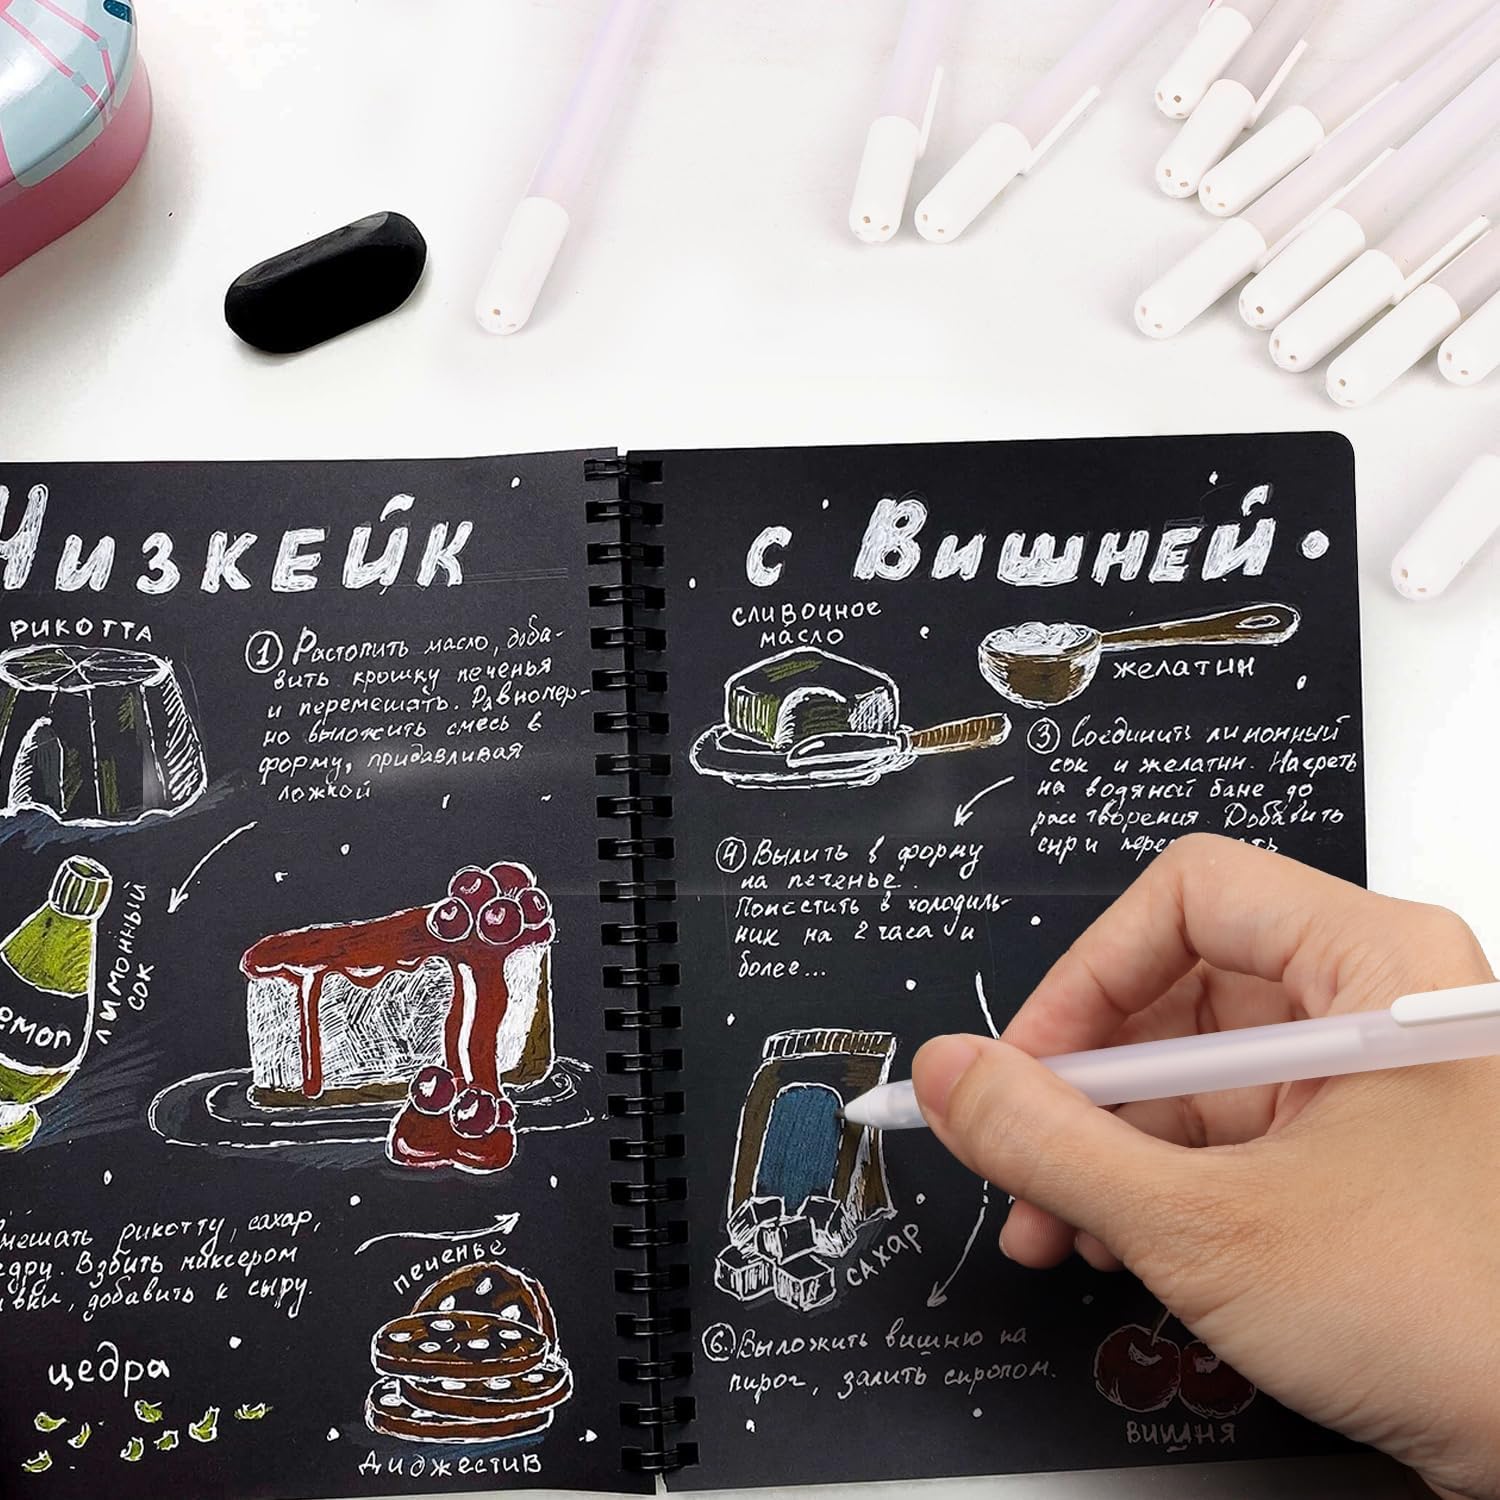 Чизкейк
РИКОТТА
① Растопить масло, доба-
вить крошку печенья
и перемешать. Равномер-
но выложить смесь в
форму, придавливая
ложкой
лимонный
сок
рикотту, сахар,
Взбить миксером
добавить к сыру.
цедра
печенье
Диджестив
с Вишней
сливочное
масло
желатин
③ Соединить лимонный
сок и желатин. Нагреть
на водяной бане до
растворения. Добавить
сыр и
④ Вылить в форму
на печенье.
Поместить в холодиль-
ник на 2 часа и
более...
сахар
⑥ Выложить вишню на
пирог, залить сиропом.
ВИШНЯ